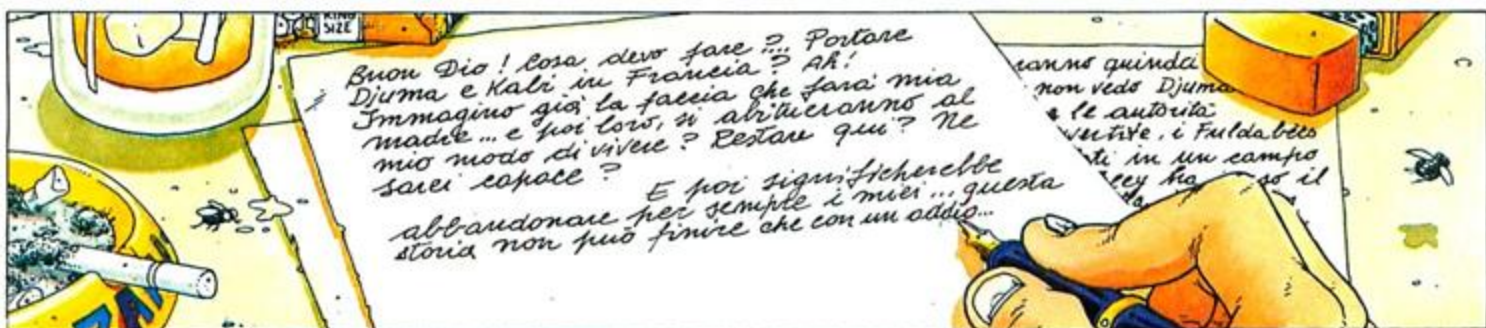 KING
SIZE
Buon Dio! Cosa devo fare?... Portare
Djuma e Kabi in Francia? Ah!
Immagino già la faccia che farà mia
madre... e poi loro, si abitueranno al
mio modo di vivere? Restare qui? Ne
sarei capace?
E poi significherebbe
abbandonare per sempre i miei... questa
storia non può finire che con un addio...
ranno quindici
non vedo Djuma
le autorità
vertite, i Fuldabées
ti in un campo
ha so il